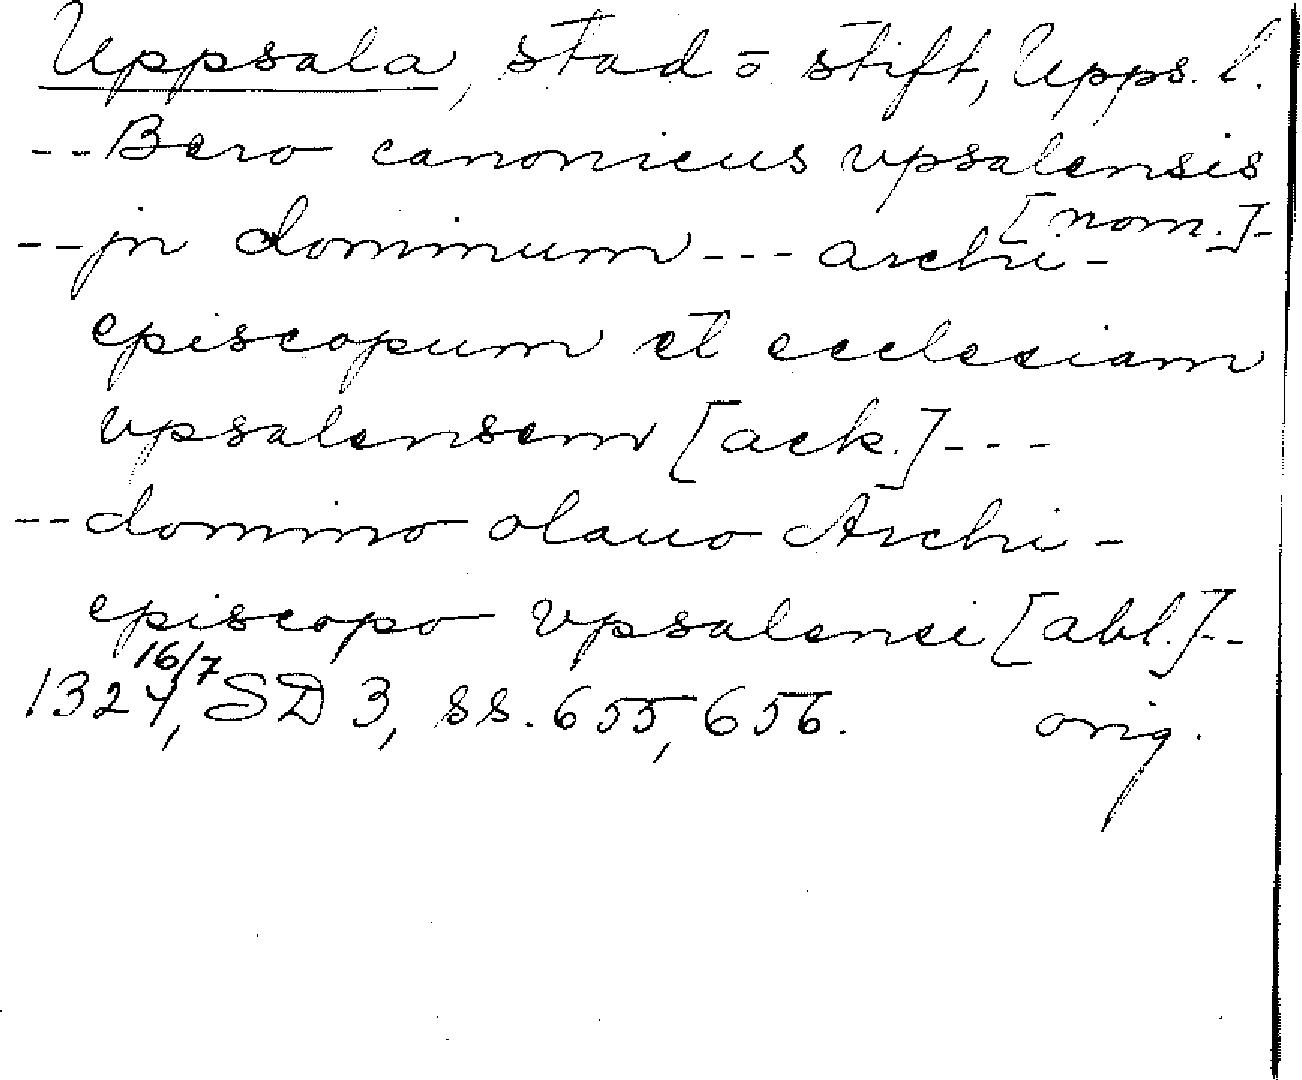 Uppsala, stad o stift, Upps. l.
--Bero canonicus vpsalensis
[nom.]-
--jn dominum --- archi-
episcopum et ecclesiam
vpsalensem [ack.]---
--domino olauo Archi-
episcopo vpsalensi [abl.]--
16/7
1324, SD 3, ss. 655, 656. orig.